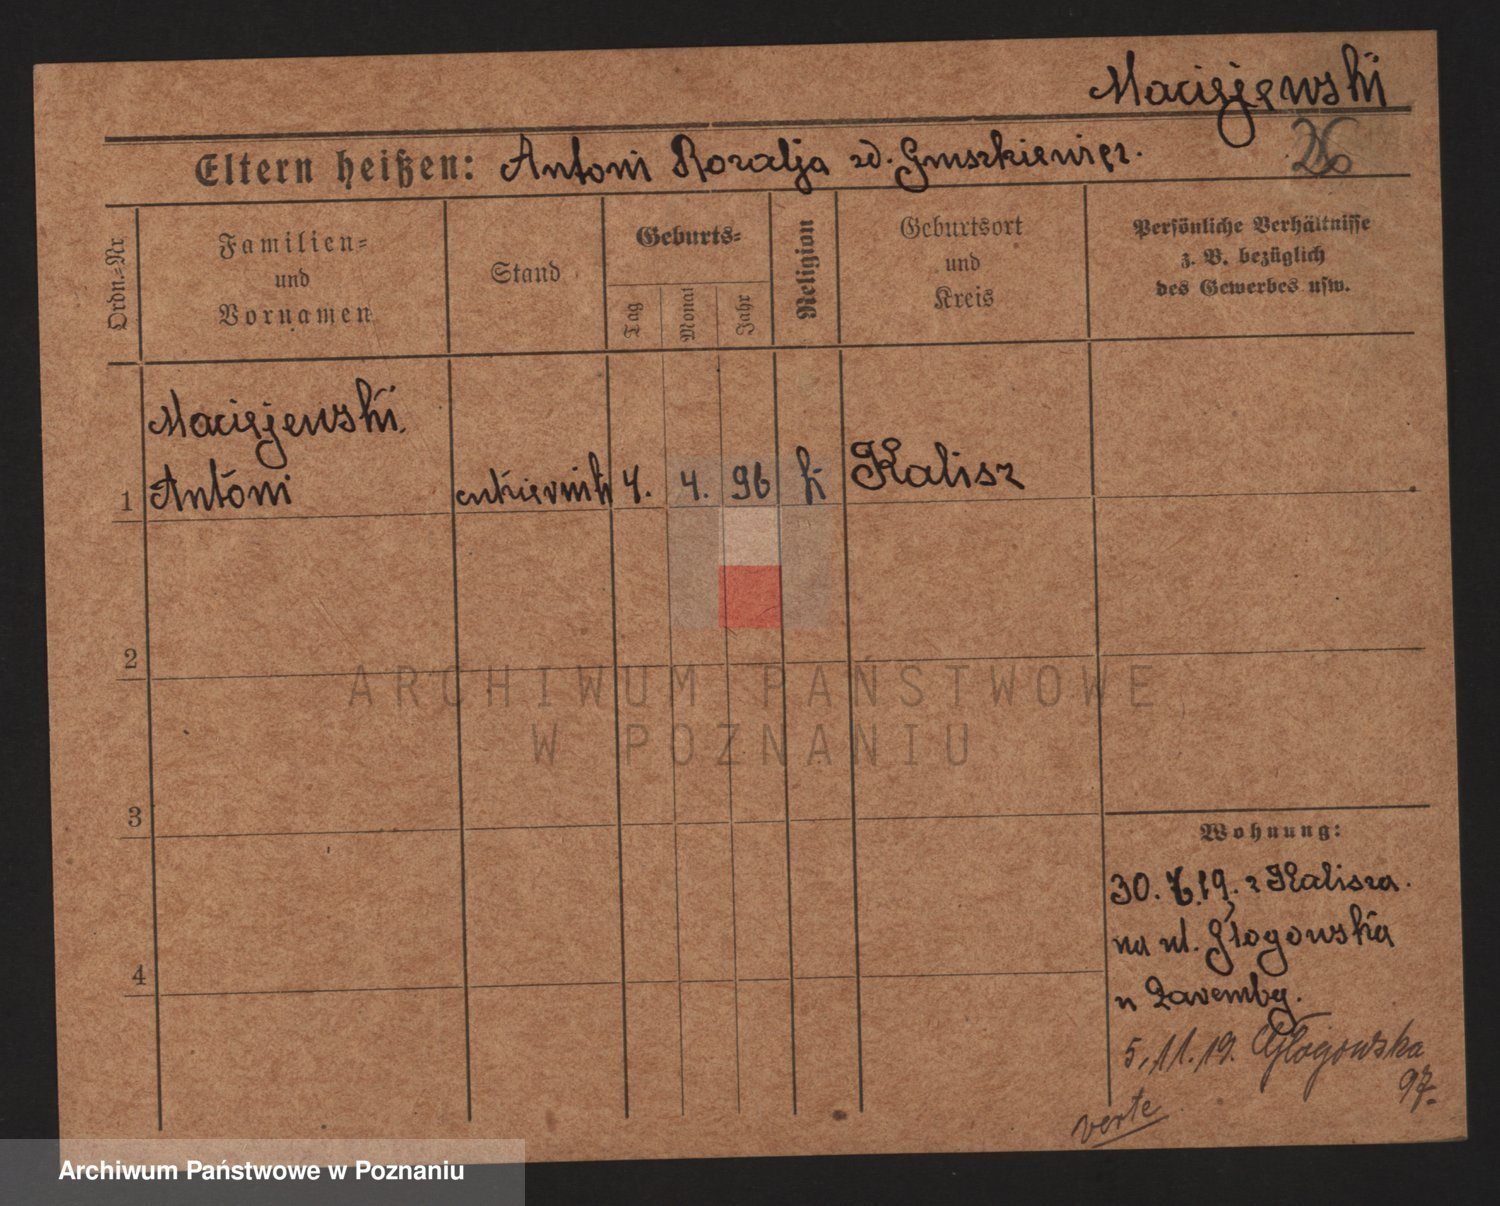 Maciejewski
26
Eltern heißen: Antoni Rozalja zd. Gruszkiewicz.
Ordn.-Nr
Familien-
und
Vornamen
Stand
Geburts-
Tag
Monat
Jahr
Religion
Geburtsort
und
Kreis
Persönliche Verhältnisse
z. B. bezüglich
des Gewerbes usw.
Maciejewski.
1 Antoni cukiernik 4. 4. 96 k Kalisz
2
3
4
Wohnung:
30. 7. 19. z Kalisza.
na ul. Głogowska
u
5. 11. 19. Głogowska
97.
verte
ARCHIWUM PAŃSTWOWE
W POZNANIU
Archiwum Państwowe w Poznaniu